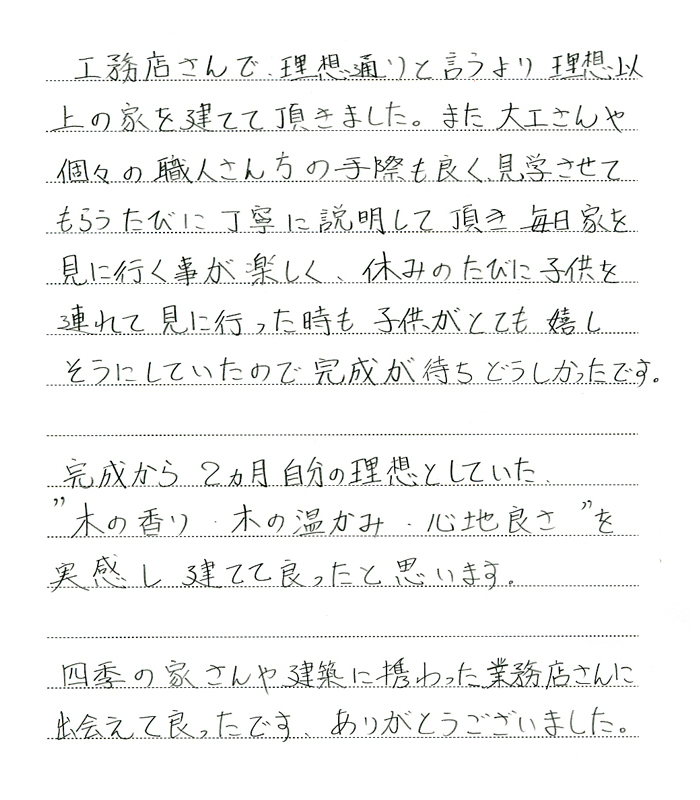 工務店さんで、理想通りと言うより 理想以
上の家を建てて頂きました。また 大工さんや
個々の職人さん方の手際も良く見学させて
もらうたびに丁寧に説明して頂き 毎日家を
見に行く事が楽しく、休みのたびに子供を
連れて見に行った時も 子供がとても 嬉し
そうにしていたので 完成が待ちどうしかったです。
完成から 2ヵ月 自分の理想としていた、
”木の香り・木の温かみ・心地良さ ”を
実感し 建てて良ったと思います。
四季の家さんや建築に携わった業務店さんに
出会えて良ったです、ありがとうございました。